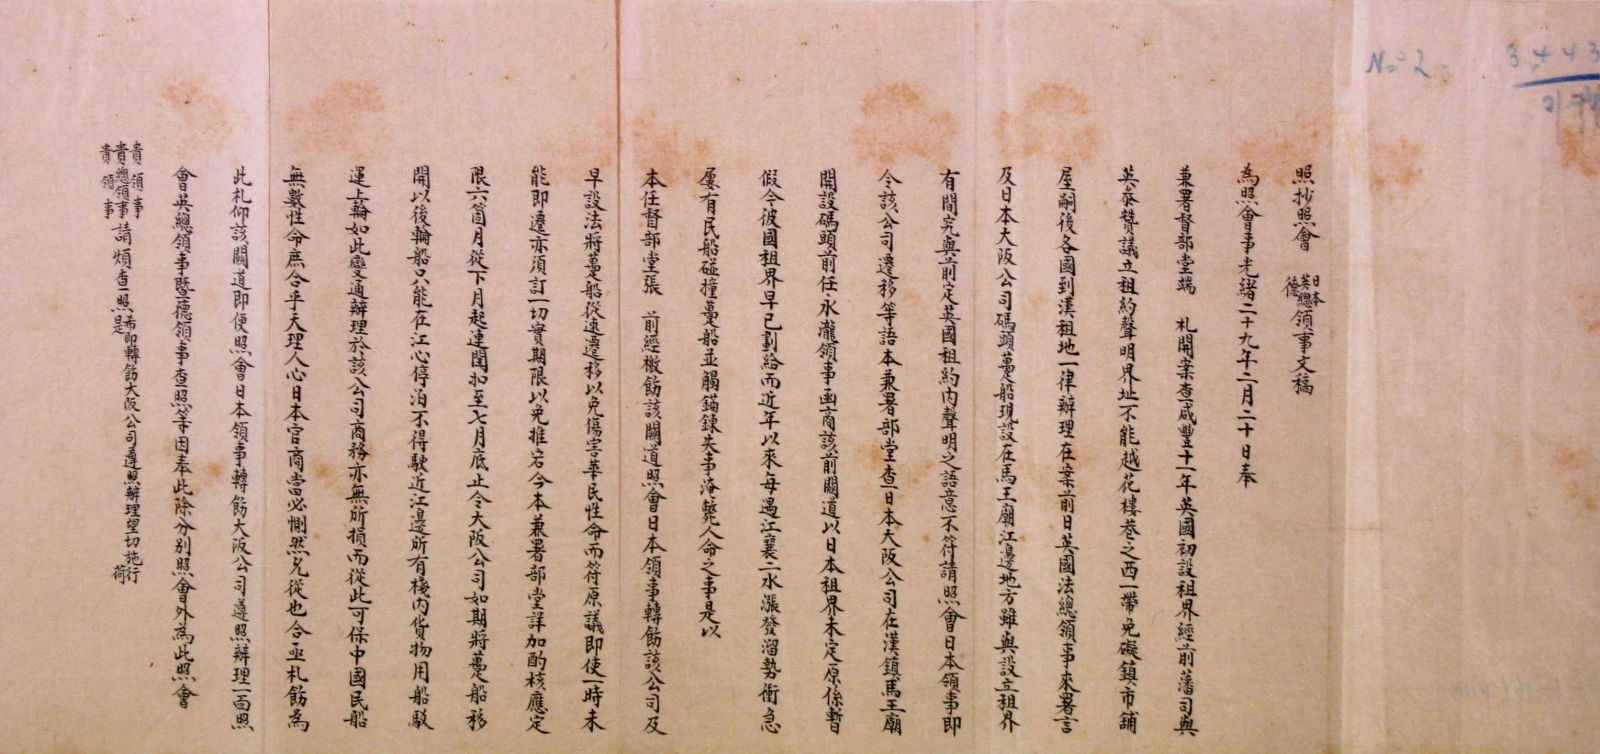 No 2.
3443
照抄照會日本英總德領事文稿
為照會事光緒二十九年二月二十日奉
兼署督部堂端 札開案查咸豐十一年英國初設租界經前藩司與
英叅贊議立租約聲明界址不能越花樓巷之西一帶免礙鎮市舖
屋嗣後各國到漢租地一律辦理在案前日英國法總領事來署言
及日本大阪公司碼頭躉船現設在馬王廟江邊地方雖與設立租界
有間究與前定英國租約內聲明之語意不符請照會日本領事即
令該公司遷移等語本兼署部堂查日本大阪公司在漢鎮馬王廟
開設碼頭前任永瀧領事函商該前關道以日本租界未定原係暫
假今彼國租界早已劃給而近年以來每遇江襄二水漲發溜勢衝急
屢有民船碰撞躉船並觸錨鍊失事淹斃人命之事是以
本任督部堂張 前經檄飭該關道照會日本領事轉飭該公司及
早設法將躉船從速遷移以免傷害華民性命而符原議即使一時未
能即遷亦須訂一切實期限以免推宕今本兼署部堂詳加酌核應定
限六箇月從下月起連閏扣至七月底止令大阪公司如期將躉船移
開以後輪船只能在江心停泊不得駛近江邊所有棧內貨物用船駁
運上輪如此變通辦理於該公司商務亦無所損而從此可保中國民船
無數性命庶合乎天理人心日本官商當必惻然允從也合亟札飭為
此札仰該關道即便照會日本領事轉飭大阪公司遵照辦理一面照
會英總領事暨德領事查照等因奉此除分別照會外為此照會
貴領事
貴總領事請煩查照希即轉飭大阪公司遵照辦理望切施行
貴領事 是荷